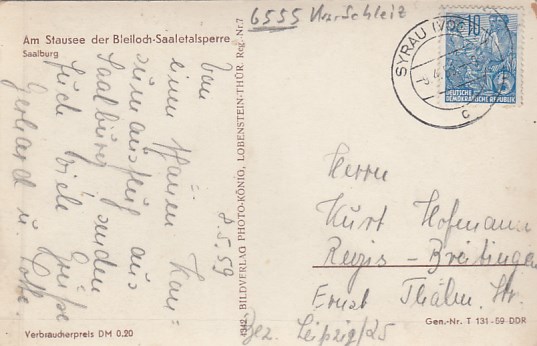 6555
Am Stausee der Bleiloch-Saaletalsperre
Saalburg
Von
einem schönen Kan=
zurausflug aus
Saalburg senden
Euch viele Grüße
Gerhard u. Lotte.
8.5.59
1342. BILDVERLAG PHOTO-KÖNIG, LOBENSTEIN-THÜR. Reg. Nr.7
SYRAU (VOGTL)
c
10
DEUTSCHE
DEMOKRATISCHE REPUBLIK
Herrn
Kurt Hofmann
Regis-Breitingen
Ernst Thälm. Str.
Bez. Leipzig/25
Verbraucherpreis DM 0.20
Gen.-Nr. T 131-59-DDR